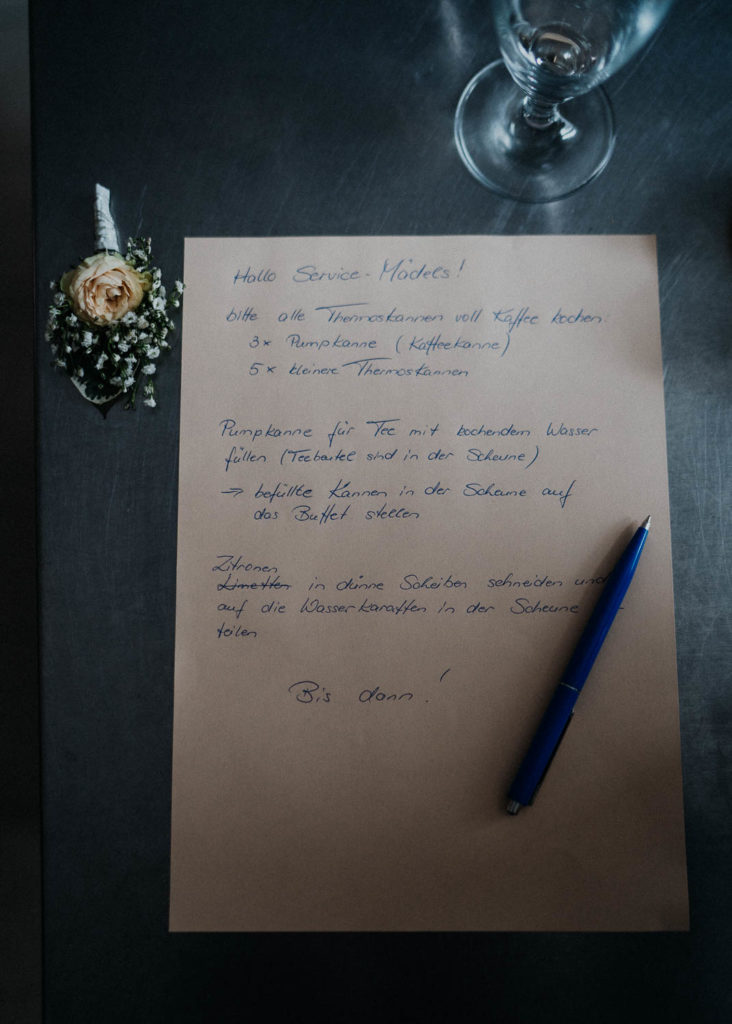 Hallo Service-Mädels!
bitte alle Thermoskannen voll Kaffee kochen:
3x Pumpkanne (Kaffeekanne)
5x kleinere Thermoskannen
Pumpkanne für Tee mit kochendem Wasser
füllen (Teebeutel sind in der Scheune)
→ befüllte Kannen in der Scheune auf
das Buffet stellen
Zitronen
Limetten in dünne Scheiben schneiden und
auf die Wasserkaraffen in der Scheune -
teilen
Bis dann!